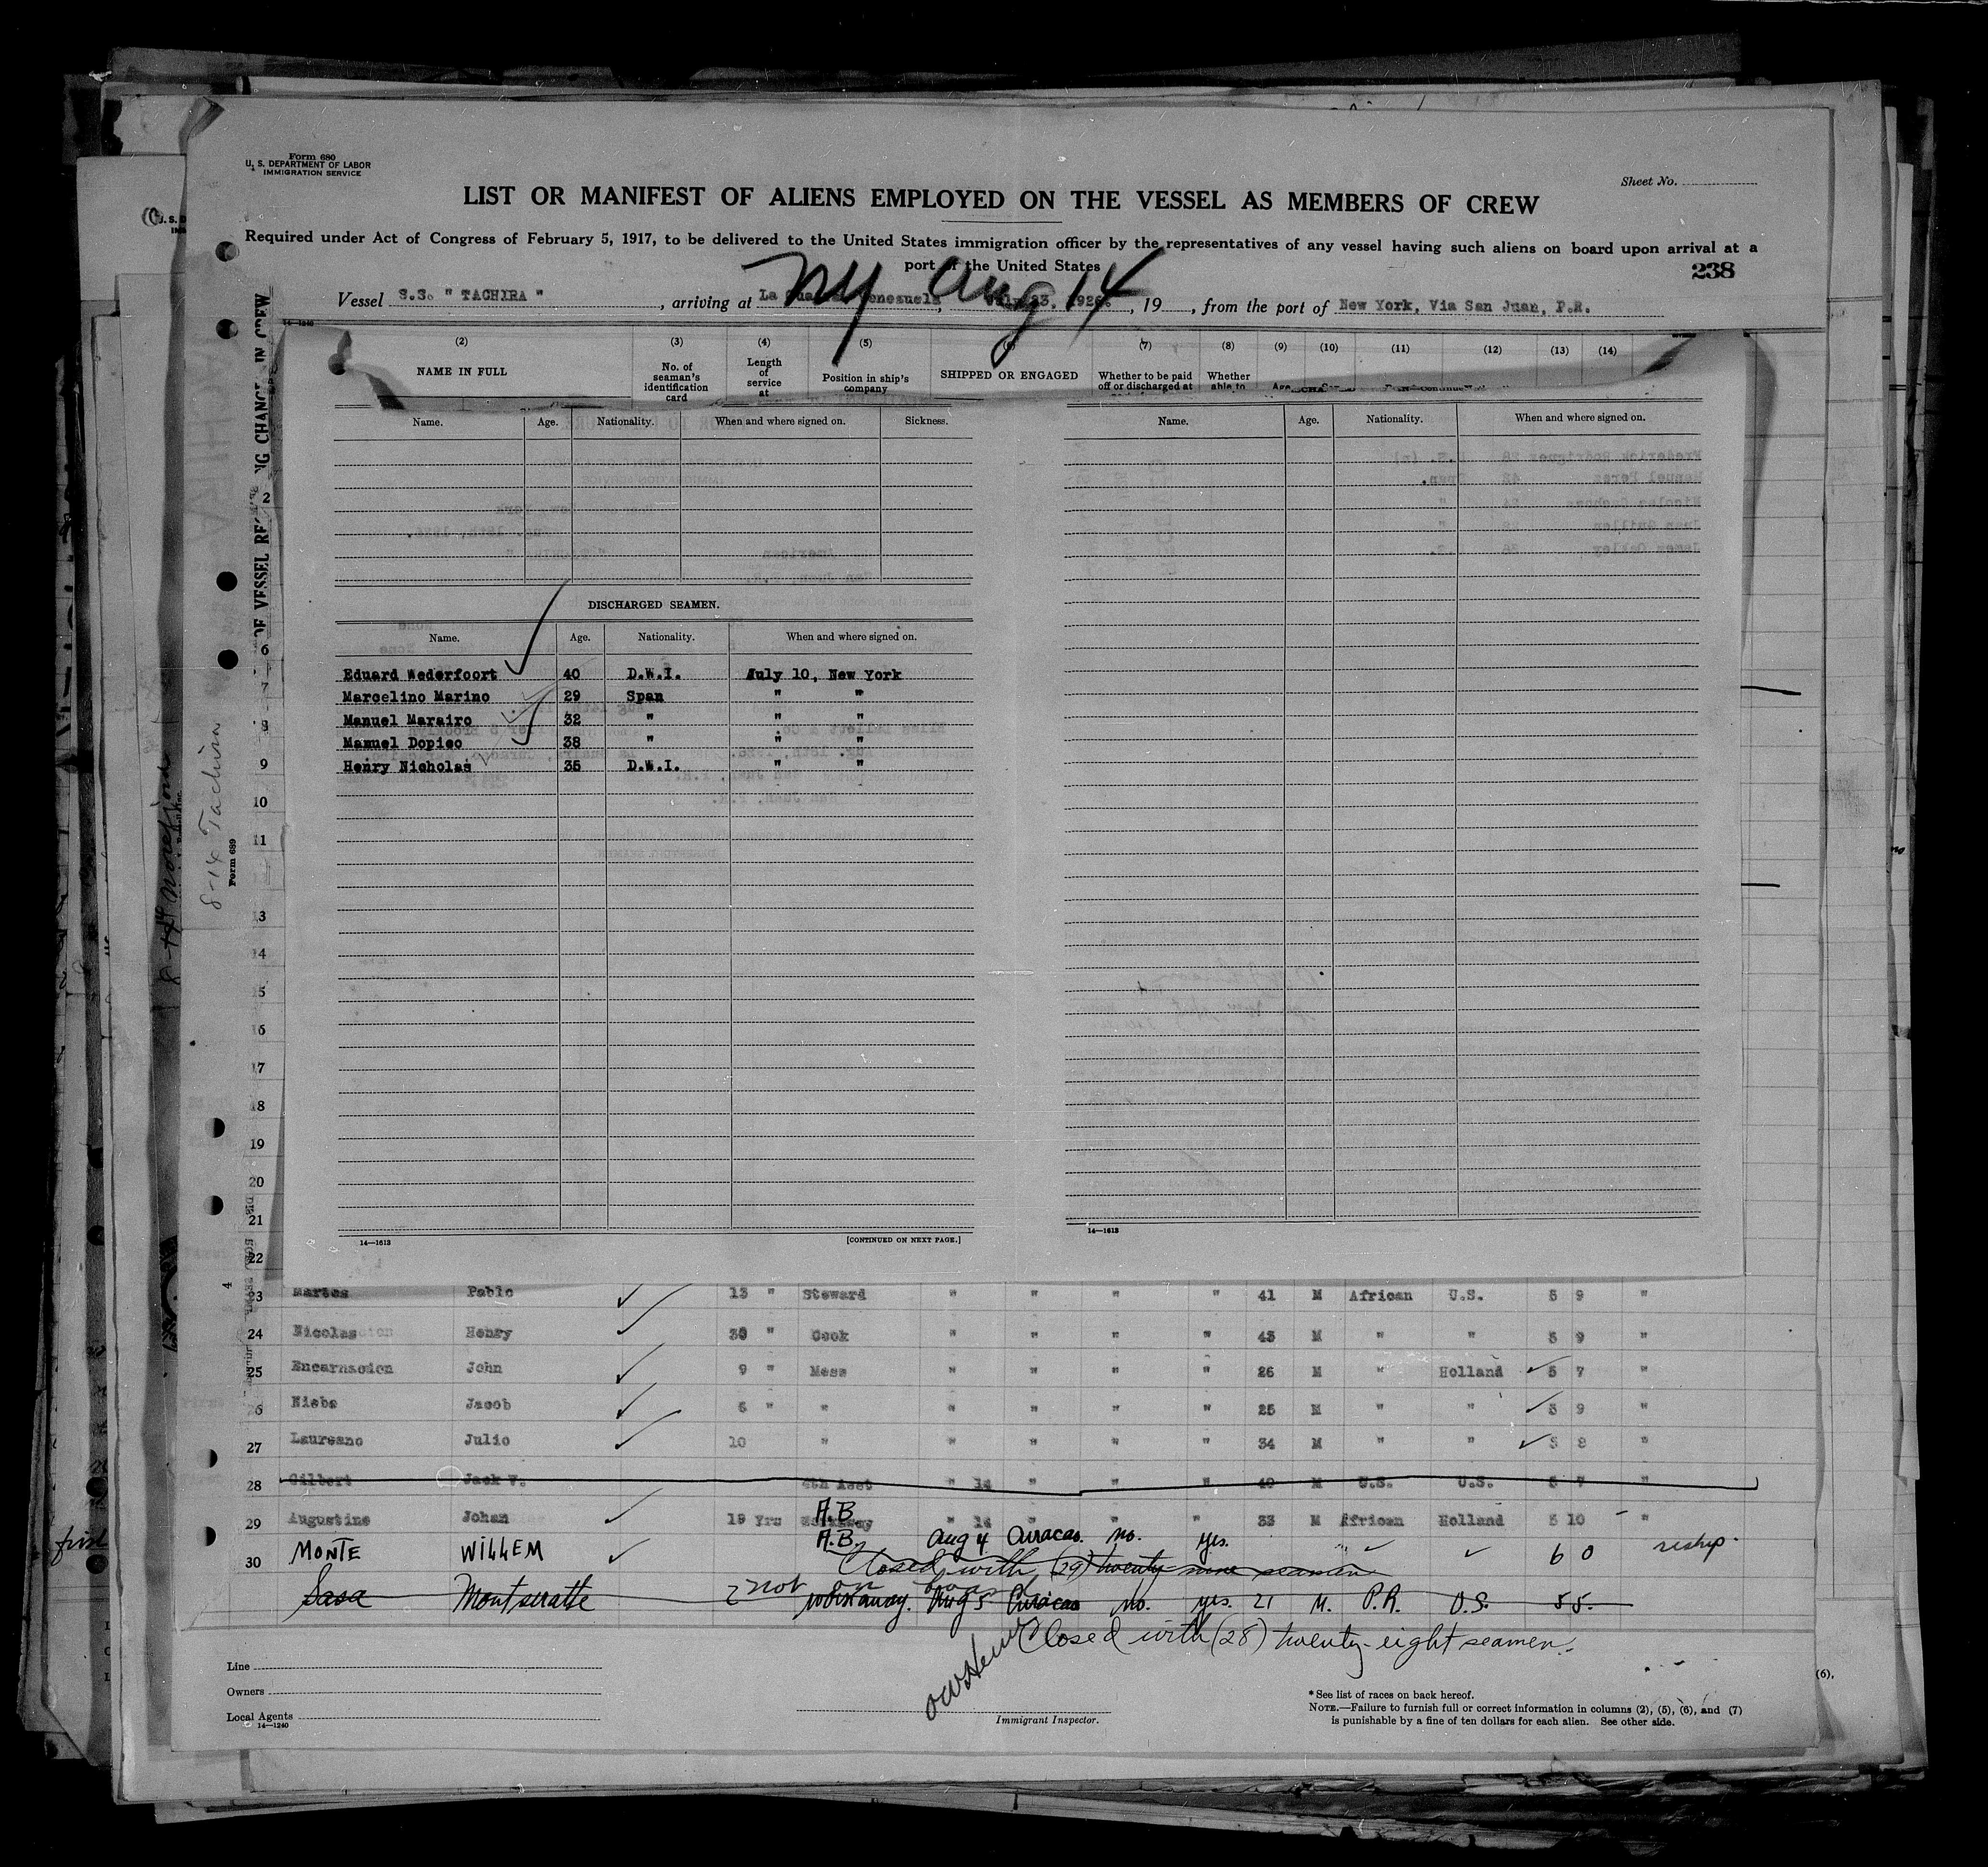 Form 680
U. S. DEPARTMENT OF LABOR
IMMIGRATION SERVICE
Sheet No.
LIST OR MANIFEST OF ALIENS EMPLOYED ON THE VESSEL AS MEMBERS OF CREW
Required under Act of Congress of February 5, 1917, to be delivered to the United States immigration officer by the representatives of any vessel having such aliens on board upon arrival at a
port of the United States
238
Vessel S.S. " TACHIRA ", arriving at La Guaira, Venezuela, July 23, 1926. , 19 , from the port of New York, Via San Juan, P.R.
NY Aug 14
14—1240
(2) (3) (4) (5) (6) (7) (8) (9) (10) (11) (12) (13) (14)
NAME IN FULL No. of seaman's identification card Length of service at Position in ship's company SHIPPED OR ENGAGED Whether to be paid off or discharged at Whether able to Age
Name. Age. Nationality. When and where signed on. Sickness.
Name. Age. Nationality. When and where signed on.
DISCHARGED SEAMEN.
Name. Age. Nationality. When and where signed on.
Eduard Wederfoort 40 D.W.I. July 10, New York
Marcelino Marino 29 Span " "
Manuel Marairo 32 " " "
Manuel Dopico 38 " " "
Henry Nicholas 35 D.W.I. " "
14—1613 [CONTINUED ON NEXT PAGE.]
14—1613
OF VESSEL
CHANGE IN CREW
Form 689
8-14 Tachira
2
6
7
8
9
10
11
13
14
15
16
17
18
19
20
21
22
23 Martes Pablo 13 " Steward " " " " 41 M African U.S. 5 9 "
24 Nicolas Henry 30 " Cook " " " " 43 M " " 5 9 "
25 Encarnacion John 9 " Mess " " " " 26 M " Holland 5 7 "
26 Jacob 5 " " " " " " 25 M " " 5 9 "
27 Laureano Julio 10 " " " " " 34 M " " 5 8 "
28 Gilbert Jack V. 4th Asst " 14 " " " 40 M U.S. U.S. 5 7 "
A.B.
29 Augustine Johan 19 yrs Workaway " 14 " " " 33 M African Holland 5 10 "
30 MONTE WILLEM A.B. Aug 4 Curacao. no. yes. " 6 0 reship.
Closed with (29) twenty-nine seamen
not on board
Sasa Montseratte Workaway. Aug 5 Curacao no. yes. 21 M. P.R. U.S. 5 5.
Closed with (28) twenty-eight seamen.
Line
Owners
Local Agents
14—1240
Immigrant Inspector.
* See list of races on back hereof.
NOTE.—Failure to furnish full or correct information in columns (2), (5), (6), and (7)
is punishable by a fine of ten dollars for each alien. See other side.
(6),
first